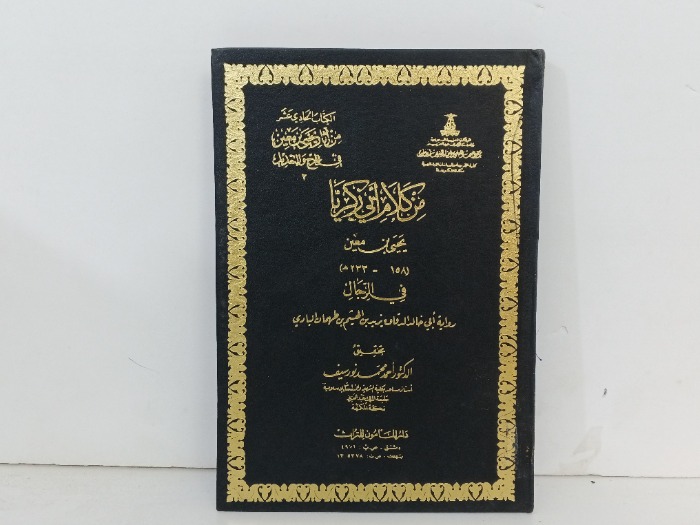 الكتاب الحادي عشر
من آثار يحيى بن معين
في الجرح والتعديل
٣
من كلام أبي زكريا
يحيى بن معين
(١٥٨ - ٢٣٣ هـ)
في الرجال
رواية أبي خالد الدقاق يزيد بن الهيثم بن طهمان البادي
تحقيق
الدكتور أحمد محمد نور سيف
مكة المكرمة
دار المأمون للتراث
دمشق - ص.ب : ٤٩٧١
بيروت - ص.ب : ١٣٠٥٣٧٨